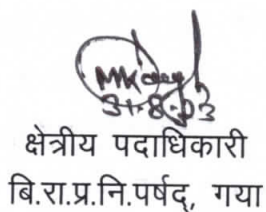 31-8-23
क्षेत्रीय पदाधिकारी
बि.रा.प्र.नि.पर्षद्, गया